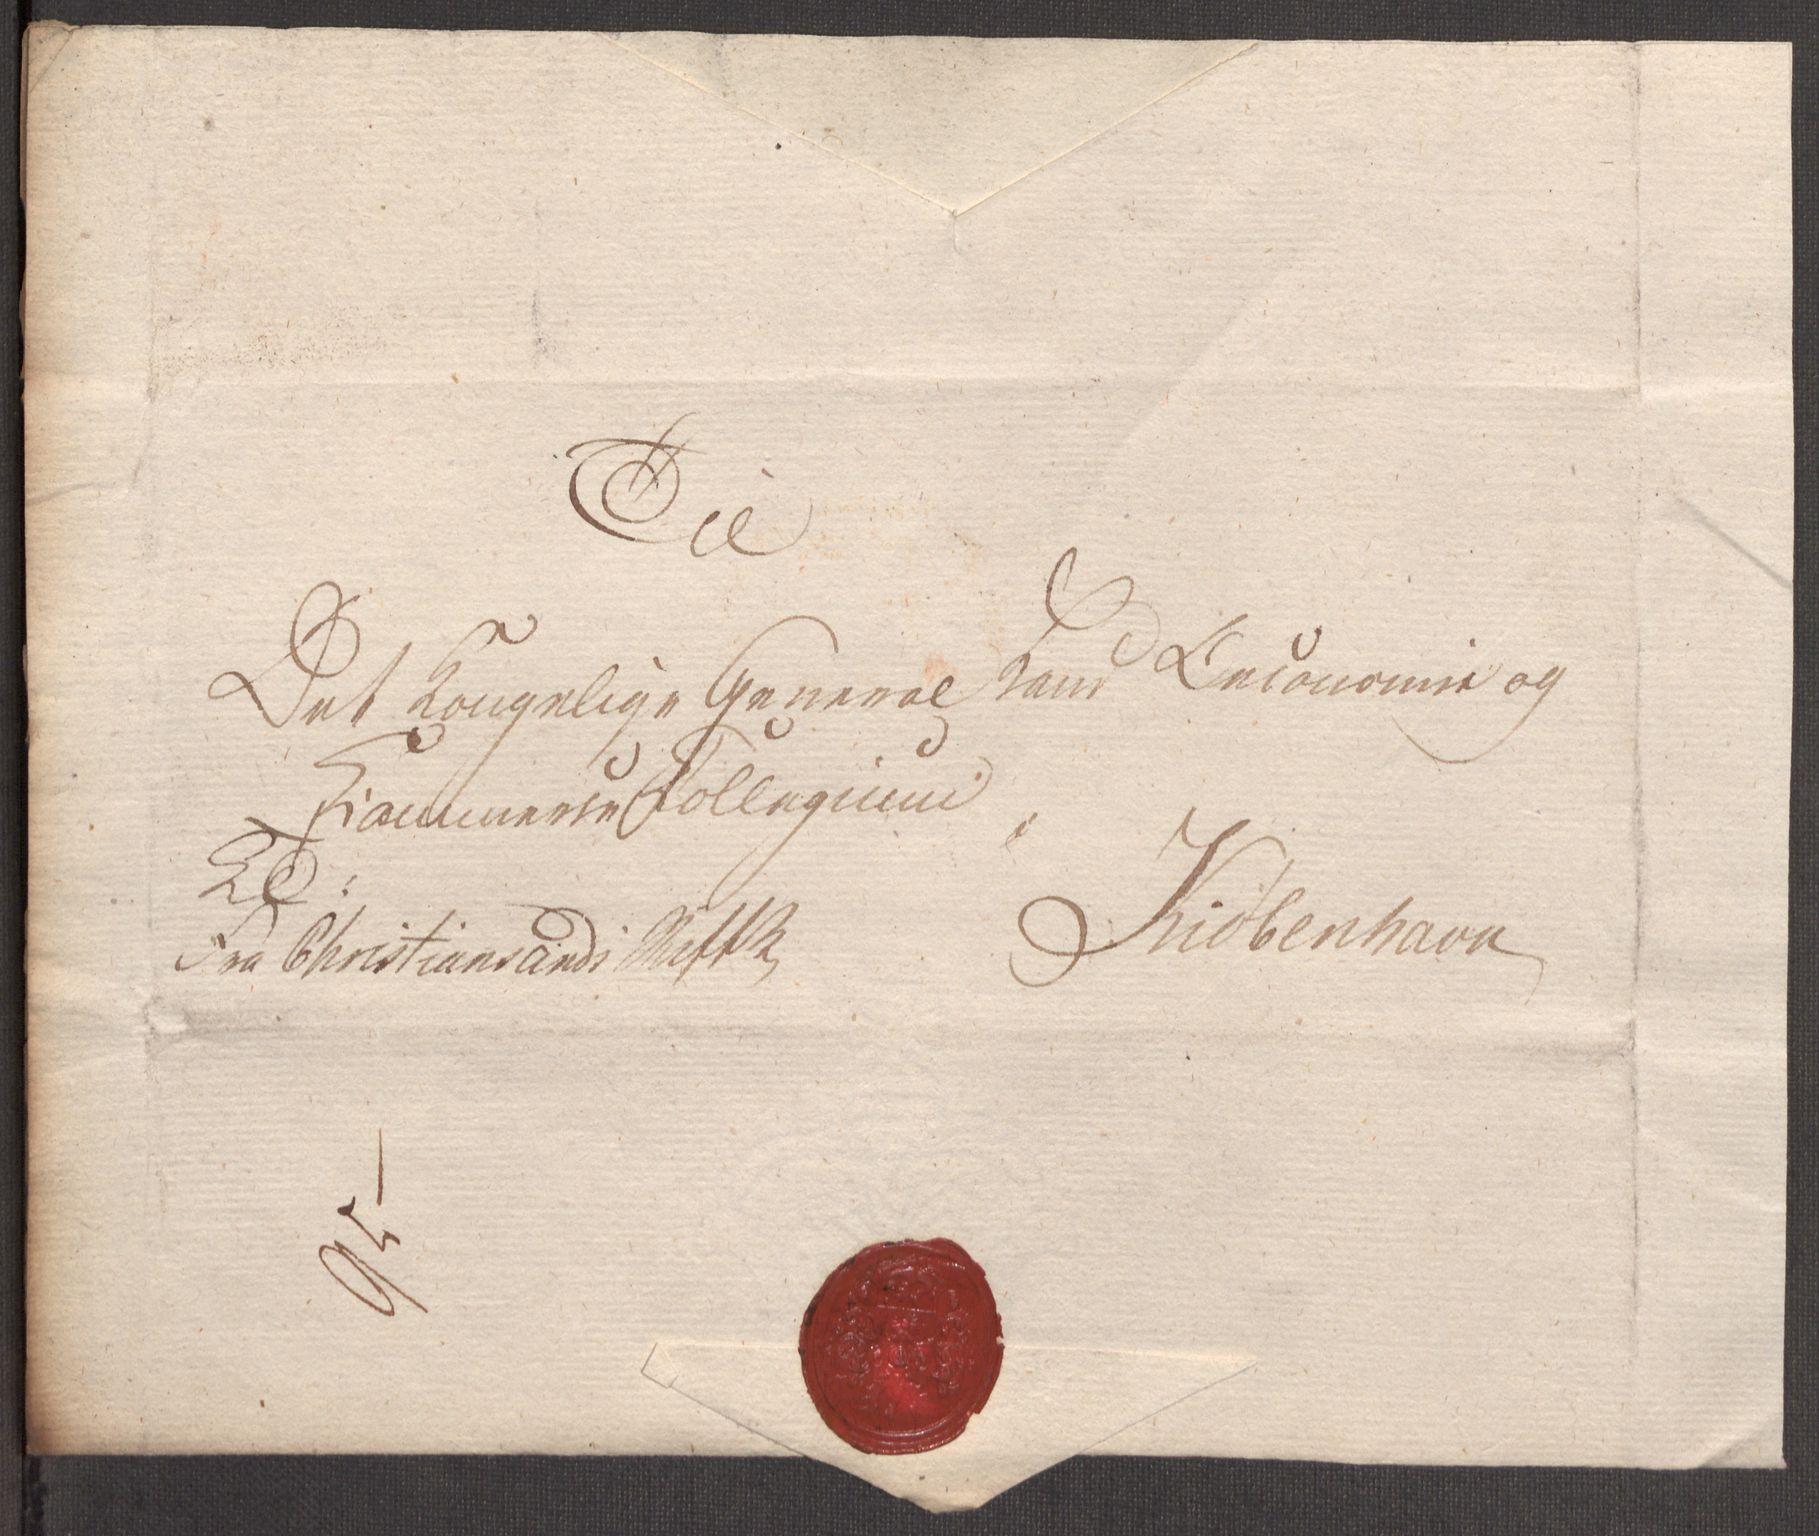 Til
Det Kongelige General Land Oeconomie og
Commerce Collegium i
K: T:
Kiöbenhavn
Fra Christiansands Stift
95